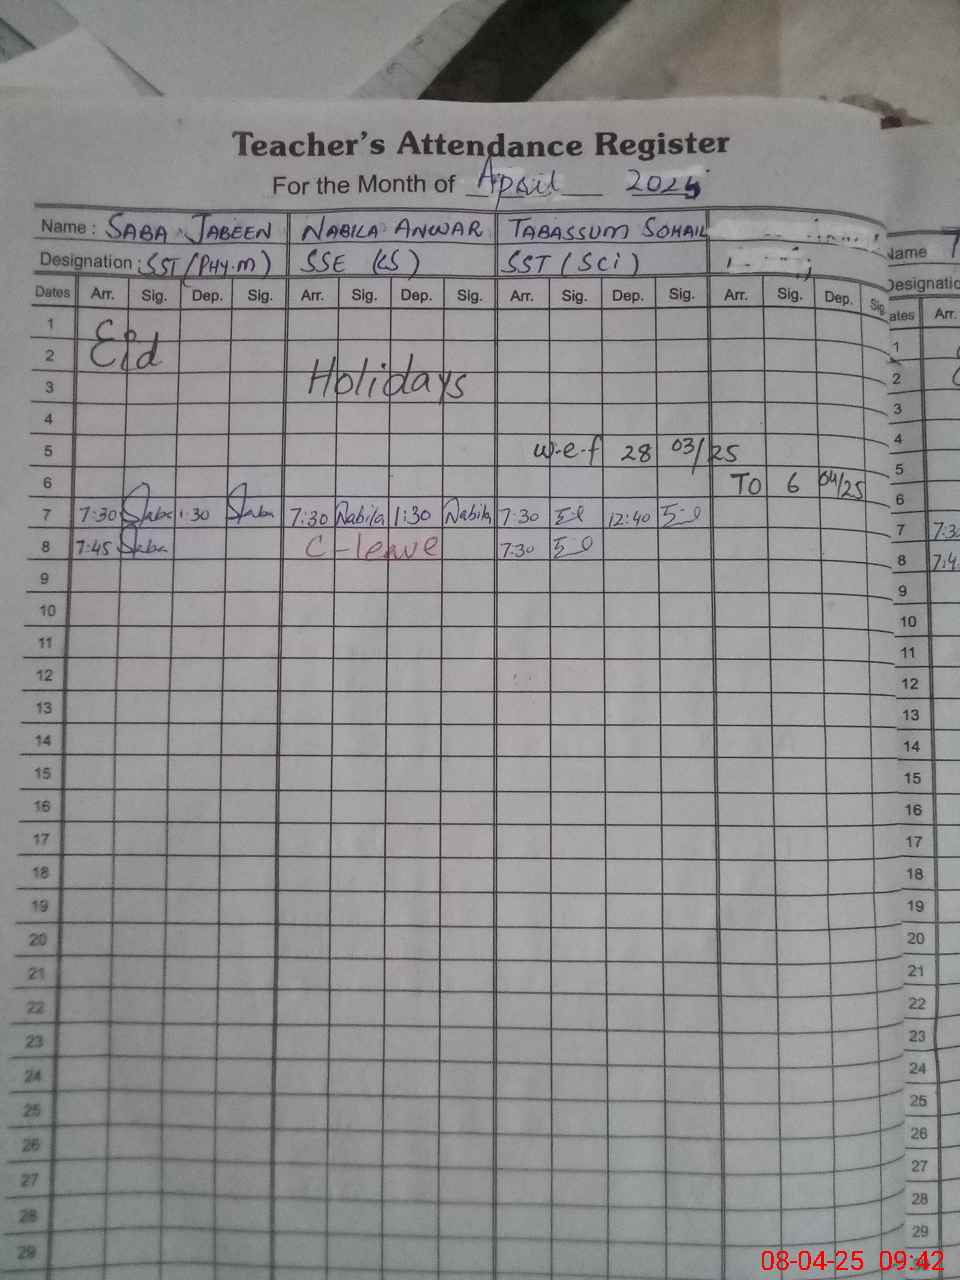 Teacher's Attendance Register
For the Month of April 2025
Name : SABA JABEEN NABILA ANWAR TABASSUM SOHAIL
Designation : SST (PHY.M) SSE (CS) SST (SCi)
Dates Arr. Sig. Dep. Sig. Arr. Sig. Dep. Sig. Arr. Sig. Dep. Sig. Arr. Sig. Dep. Sig
1
2 Eid
3 Holidays
4
5 w.e.f 28 03/25
6 TO 6 04/25
7 7:30 Saba 1:30 Saba 7:30 Nabila 1:30 Nabila 7:30 12:40
8 7:45 Saba C-leave 7:30
9
10
11
12
13
14
15
16
17
18
19
20
21
22
23
24
25
26
27
28
29
Name
Designatio
ates Arr.
1
2
3
4
5
6
7 7:3
8 7:4
9
10
11
12
13
14
15
16
17
18
19
20
21
22
23
24
25
26
27
28
29
08-04-25 09:42